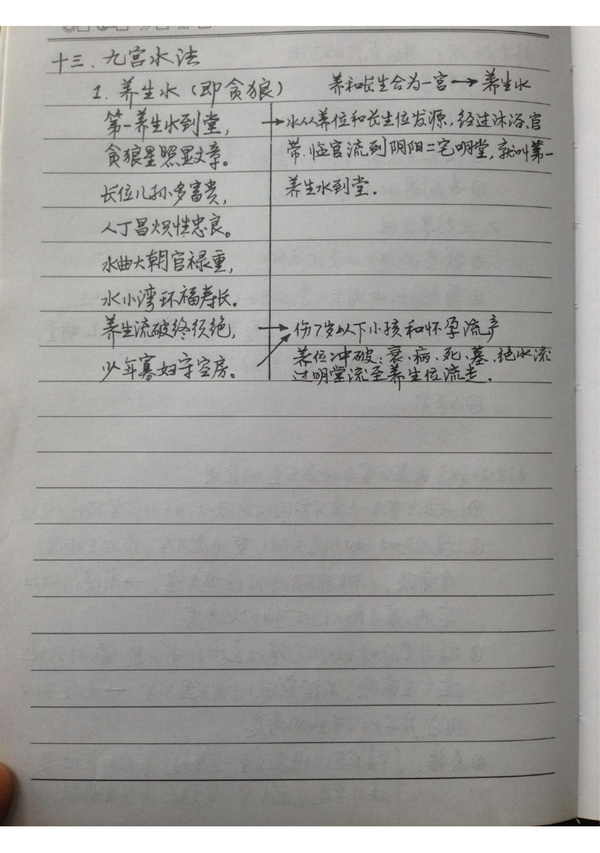 十三、九宫水法
1. 养生水（即贪狼） 养和长生合为一宫→养生水
第一养生水到堂，→水从养位和长生位发源，经过沐浴、官
贪狼星照显文章。 带、临官流到阴阳二宅明堂，就叫第一
长位儿孙多富贵， 养生水到堂．
人丁昌炽性忠良。
水曲大朝官禄重，
水小湾环福寿长。
养生流破终须绝，→伤7岁以下小孩和怀孕流产
少年寡妇守空房。 养位冲破：衰、病、死、墓、绝水流
过明堂流至养生位流走．